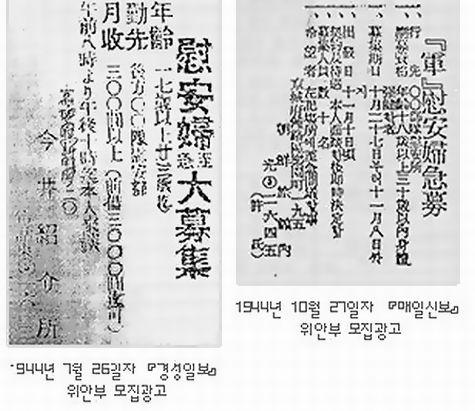 慰安婦至急大募集
年齢 一七歳以上廿三歳迄
勤先 後方〇〇隊慰安部
月收 三〇〇圓以上(前借三〇〇〇圓迄可)
午前八時より午後十時迄本人來談
今井紹介所
1944년 7월 26일자 『경성일보』
위안부 모집광고
『軍』慰安婦急募
一、行先 〇〇部隊慰安所
一、應募資格 年齡十八歲以上三十歲以內身體
一、募集期日 十月二十七日 十一月八日
一、出發日 十一月十日頃
一、契約及待遇 本人面談後即時決定
一、募集人員 數 名
一、希望者 左記場所
朝鮮旅館內
光③二六四五
(許氏)
1944년 10월 27일자 『매일신보』
위안부 모집광고